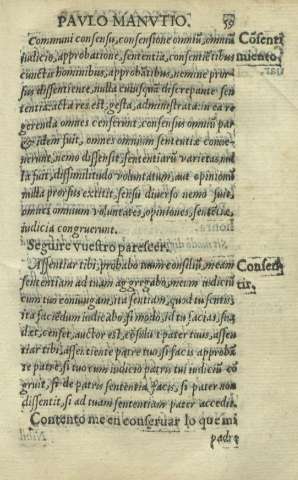 PAVLO MANVTIO. 59
Communi consensu, consensione omniũ, omniũ
iudicio, approbatione, sententia, consentiẽtibus
cunctis hominibus, approbãtibus, nemine pror-
sus dissentiente, nulla cuiusquã discrepante sen
tentia: acta res est, gesta, administrata: in ea re
gerenda omnes censerunt, consensus omniũ par
& idem fuit, omnes omnium sententia conue-
nerunt, nemo dissensit, sententiarũ varietas nul
la fuit, dissimilitudo voluntatum, aut opinionũ
nulla prorsus extitit, sensu diuerso nemo fuit,
omnes omnium voluntates, opiniones, sentẽtia,
iudicia congruerunt.
Cõsenti
miento.
Seguire vuestro parescer.
Assentiar tibi, probabo tuum consiliũ, meam
sententiam ad tuam aggregabo, meum iudiciũ
cum tuo coniugam, ita sentiam, quod tu sentis,
ita faciẽdum iudicabo, si modo, id tu facias, sua
det, censet, auctor est, cõsulit pater tuus, assen
tiar tibi, assentiente patre tuo, si facis approbã
te patre, si tuo cum iudicio patris tui iudiciũ cõ
gruit, si de patris sententia facis, si pater non
dissentit, si ad tuam sententiam pater accedit.
Consen
tir.
Contento me en conseruar lo que mi
padre